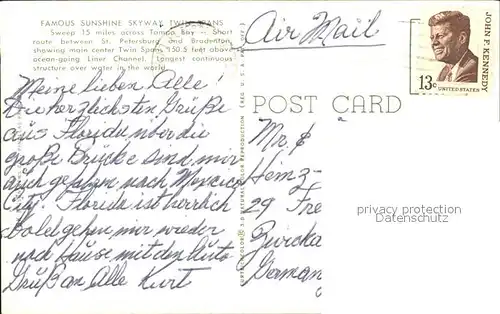 FAMOUS SUNSHINE SKYWAY, TWIN SPANS
Sweep 15 miles across Tampa Bay — Short
route between St. Petersburg and Bradenton,
showing main center Twin Spans 150.5 feet above
ocean-going Liner Channel. Largest continuous
structure over water in the world.
Air Mail
JOHN F. KENNEDY
13c
UNITED STATES
POST CARD
Meine lieben Alle
Die herzlichsten Grüße
aus Florida über die
große Brücke sind mir
auch gefahren nach Mexico
City. Florida ist herrlich
Bald gehen mir wieder
nach Hause mit den Auto
Gruß an Alle Kurt
Mr. &
Heinz-
29 Fre
Zwicka
German
privacy protection
Datenschutz